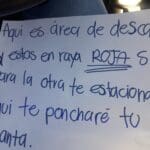 Aquí es área de desca
estas en raya ROJA S
para la otra te estaciona
quí te poncharé tu
anta.